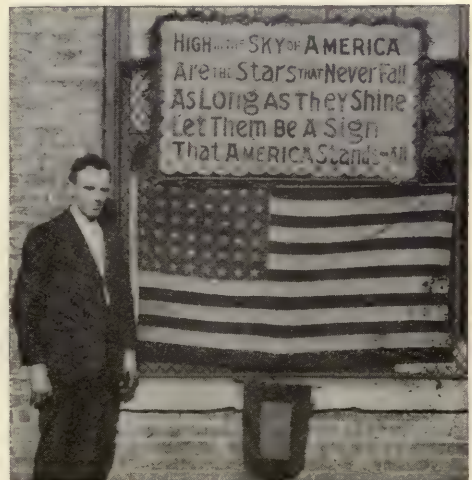 HIGH IN THE SKY OF AMERICA
Are THE Stars THAT Never Fall
As Long As They Shine
Let Them Be A Sign
That AMERICA Stands-